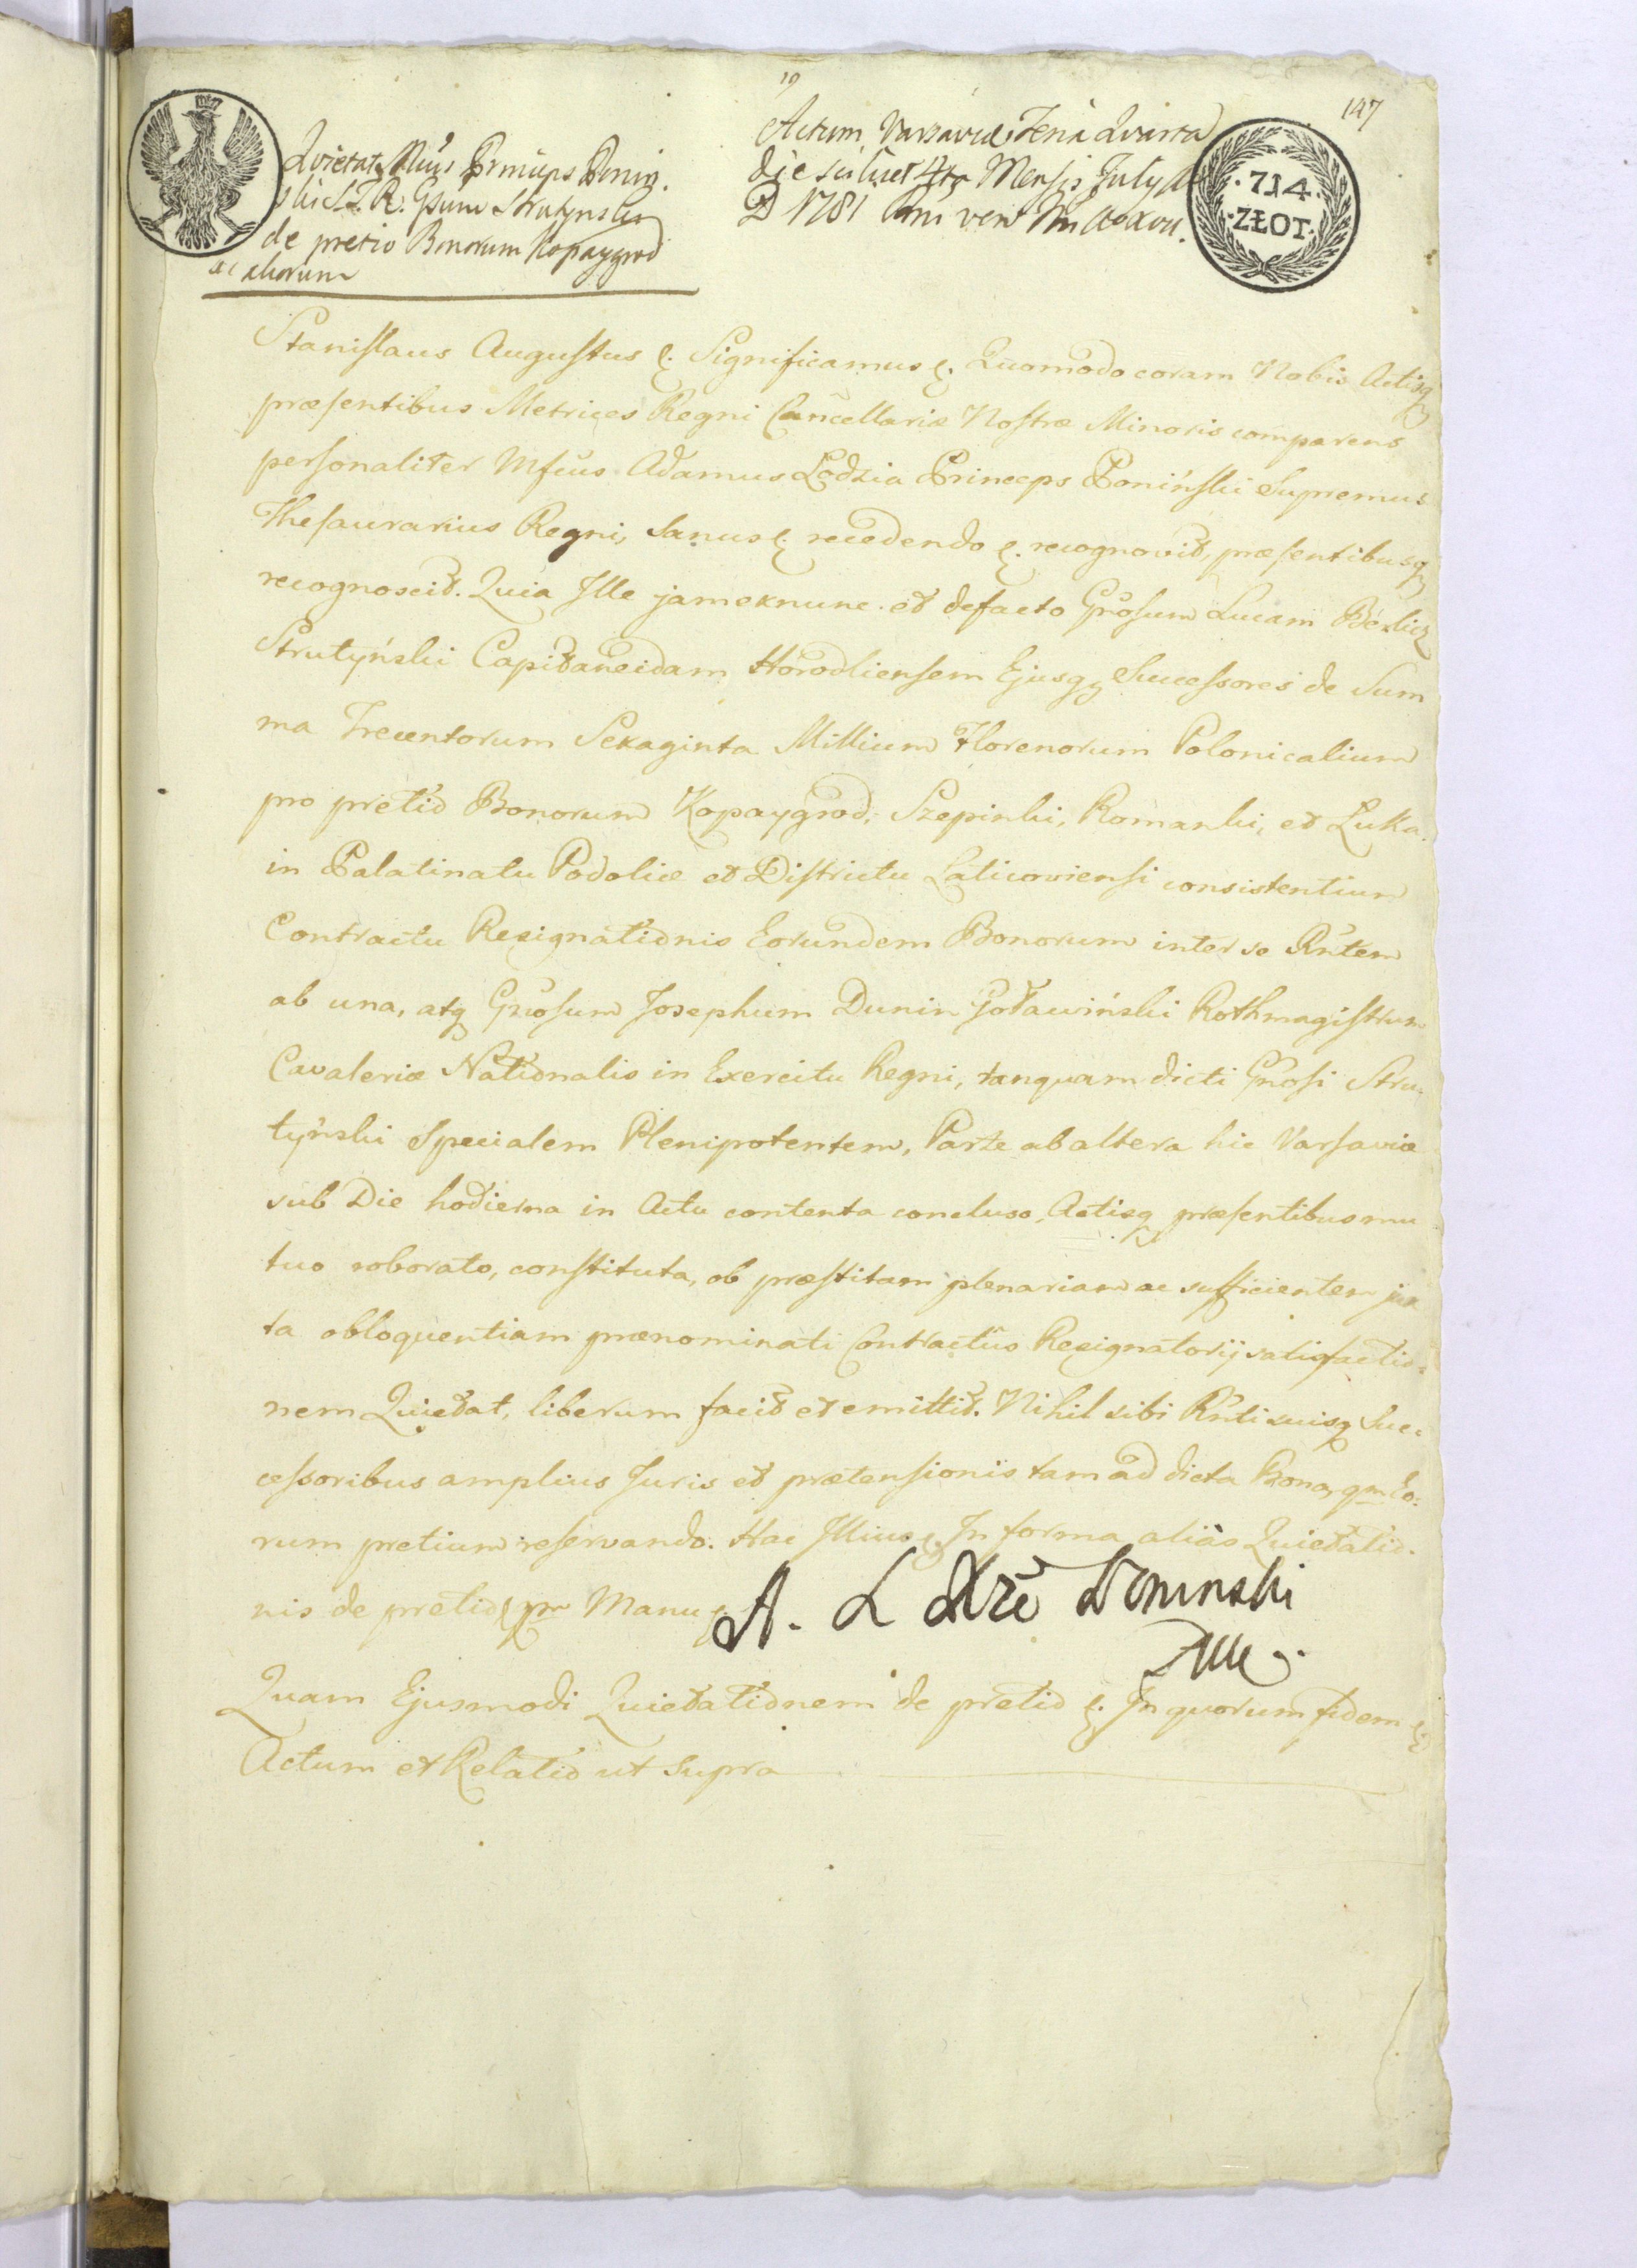 19
147
Quietat Mfcus Princeps Ponin,
ski S. T. R. Gsum Strutynski
de pretio Bonorum Kopaygrod
ac aliorum
Actum Varsaviæ Feria Quarta
die scilicet 4ta Mensis July A
D 1781
· 714 ·
· ZŁOT ·
Stanislaus Augustus &. Significamus &. Quomodo coram Nobis Actisq
præsentibus Metrices Regni Cancellariæ Nostræ Minoris comparens
personaliter Mfcus Adamus Lodzia Princeps Poniński Supremus
Thesaurarius Regni, Sanus &. recedendo &. recognovit, præsentibusq
recognoscit. Quia Ille jam exnunc et defacto Gnosum Lucam Berlicz
Strutyński Capitaneidam Horodliensem Ejusq Successores de Sum
ma Trecentorum Sexaginta Millium Florenorum Polonicalium
pro pretio Bonorum Kopaygrod, Szepinki, Romanki, et Luka
in Palatinatu Podoliæ et Districtu Laticoviensi consistentium
Contractu Resignationis Eorundem Bonorum inter se Rntem
ab una, atq Gnosum Josephum Dunin Goławiński Rothmagistrum
Cavaleriæ Nationalis in Exercitu Regni, tanquam dicti Gnosi Stru-
tyński Specialem Plenipotentem, Parte ab altera hic Varsaviæ
sub Die hodierna in Actu contenta concluso, Actisq præsentibus mu
tuo roborato, constituta, ob præstitam plenariam ac sufficientem jux
ta obloquentiam prænominati Contractûs Resignatorij satisfactio-
nem Quietat, liberum facit et emittit. Nihil sibi Rnti suisq Suc-
cessoribus amplius Juris et prætensionis tam ad dicta Bona, qm Eo-
rum pretium reservando. Hac Illius &. In forma aliàs Quietatio-
nis de pretio & pr Manu &
A. L Xże Poninski
Quam Ejusmodi Quietationem de pretio &. In quorum fidem &
Actum et Relatio ut supra